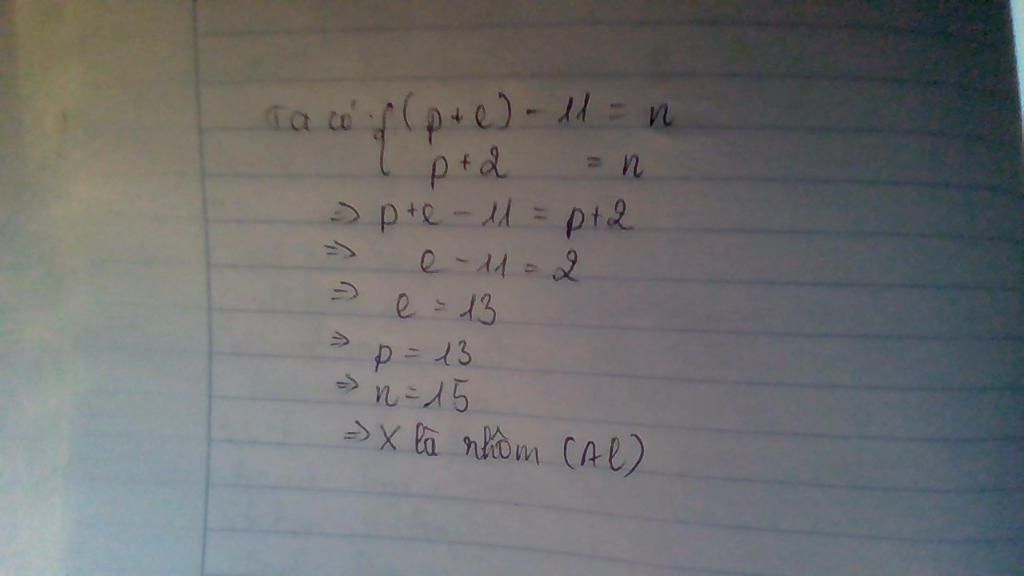 Ta có: { (p+e) - 11 = n
p+2 = n
=> p+e - 11 = p+2
=> e - 11 = 2
=> e = 13
=> p = 13
=> n = 15
=> X là nhôm (Al)